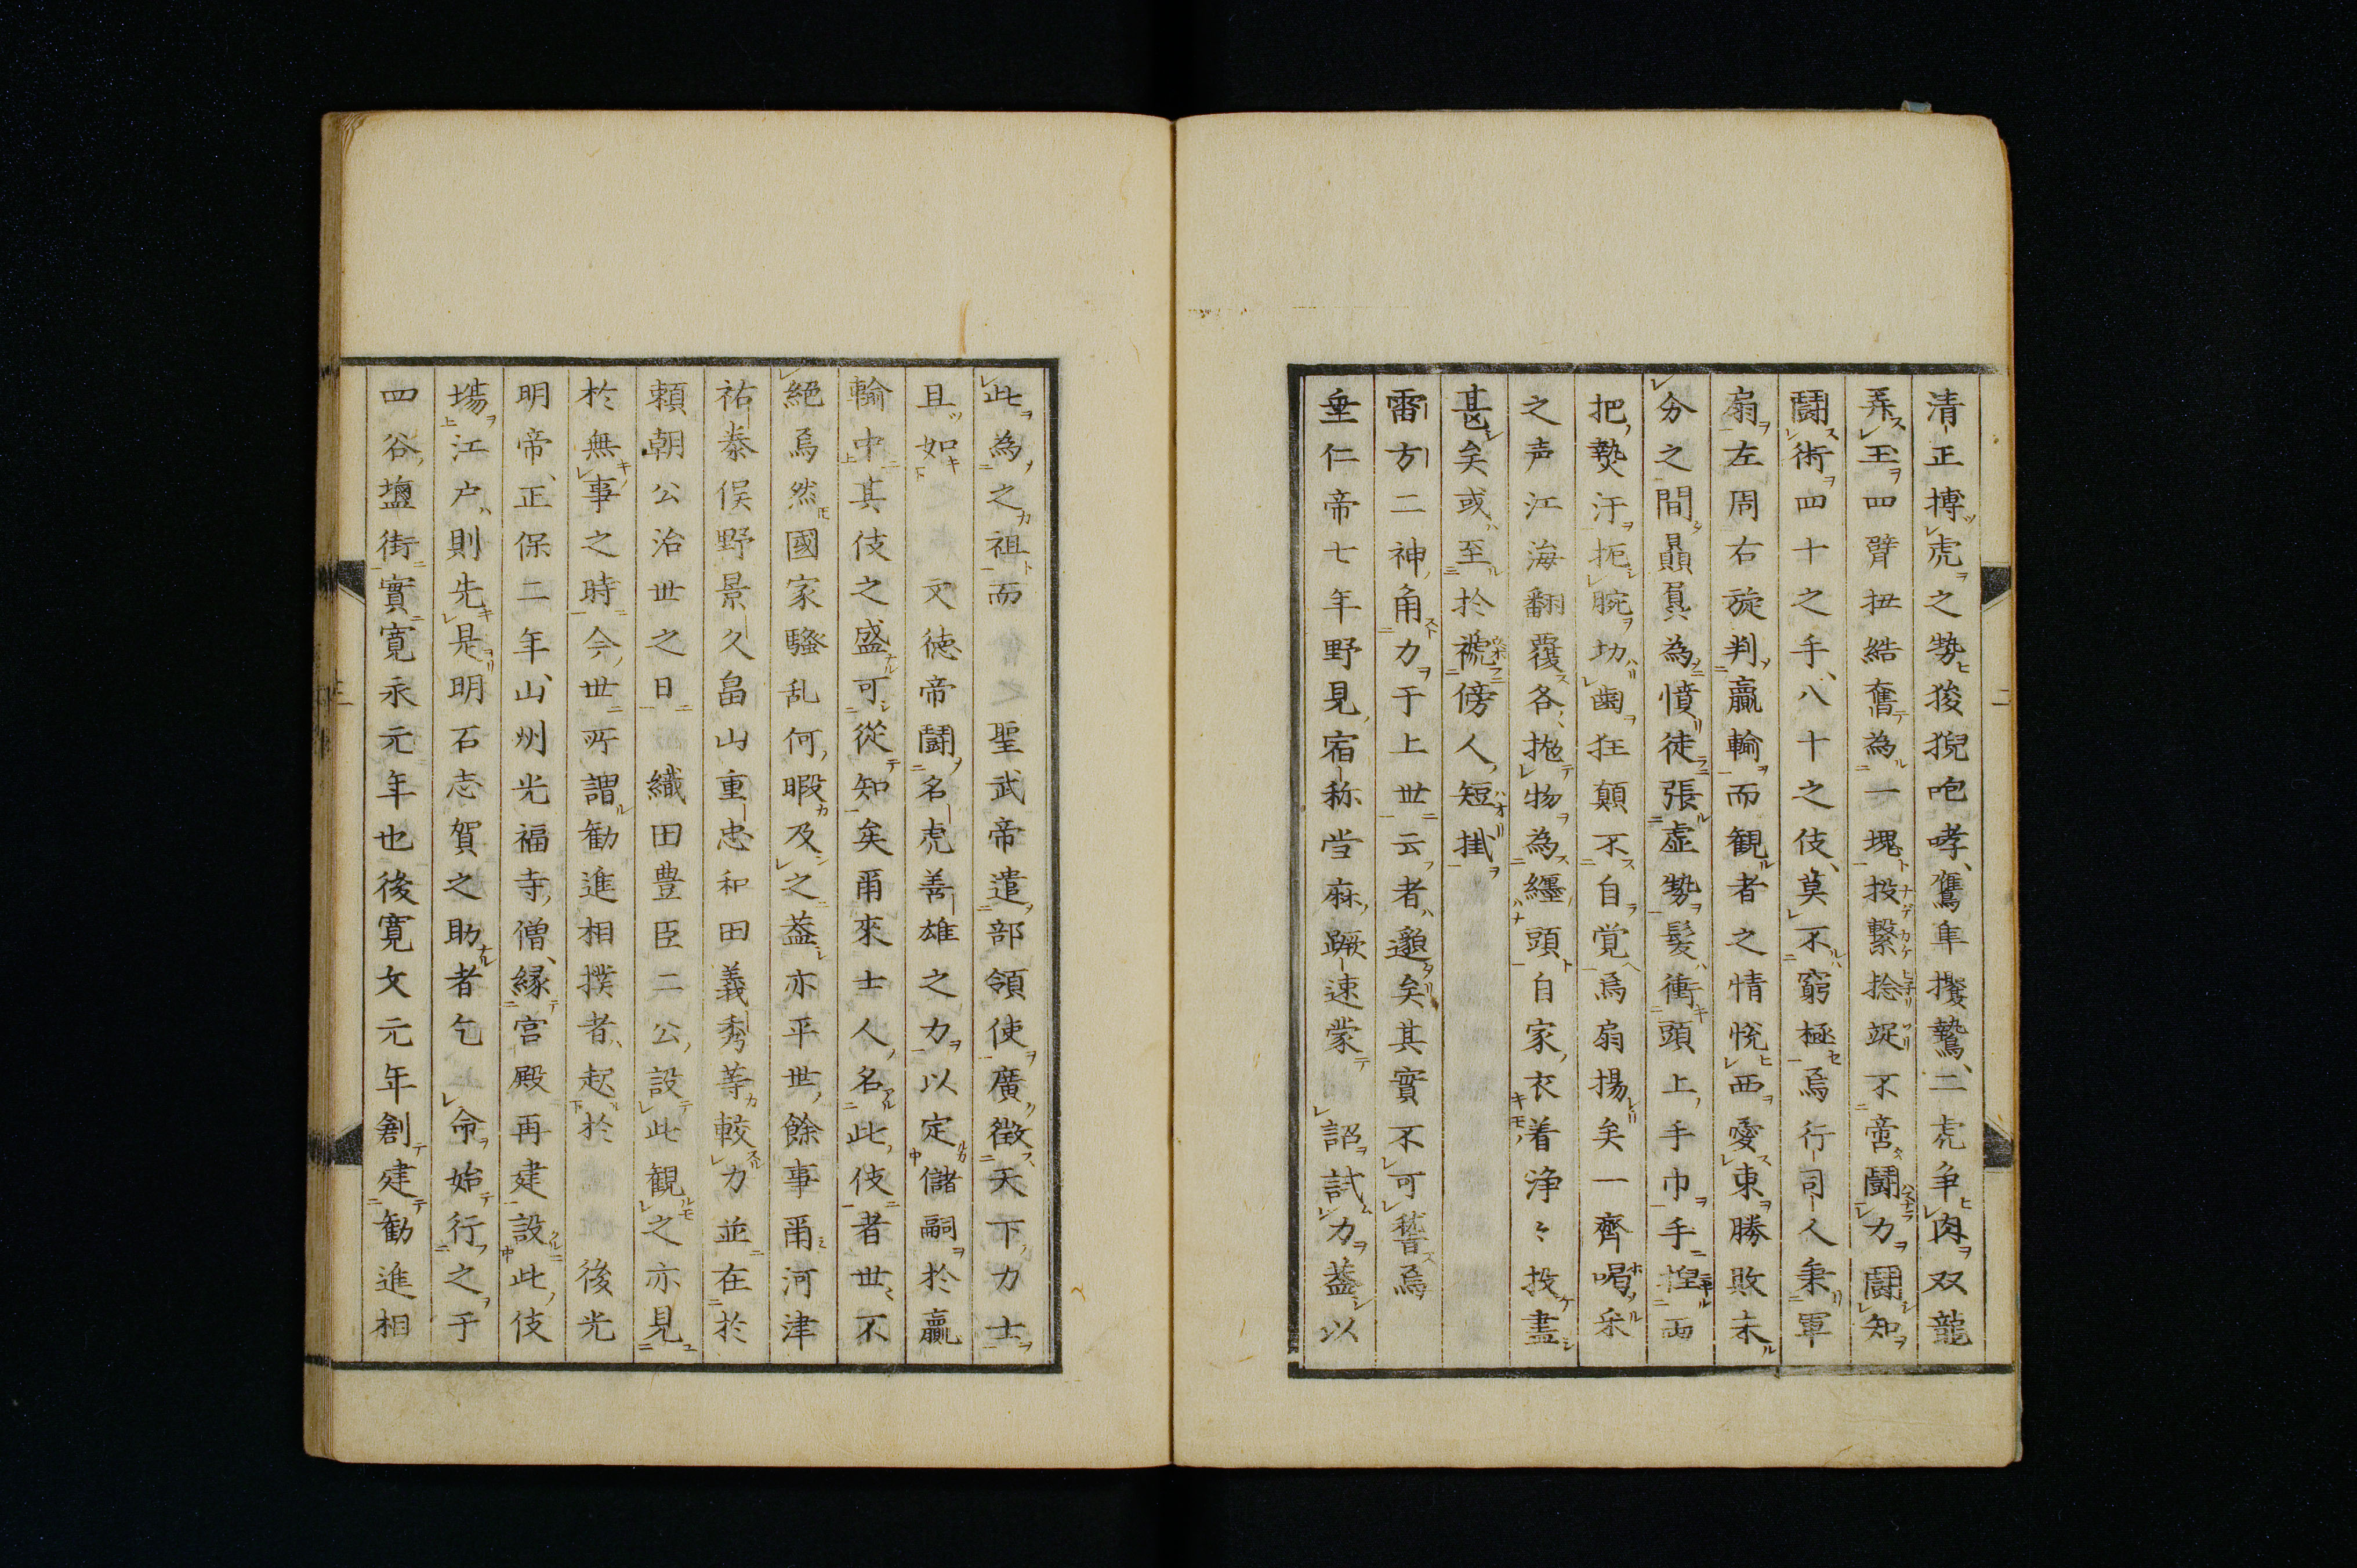 二
清正搏虎之勢狻猊咆哮鷹隼攫鷙二虎争肉双龍
弄玉四臂扭結奮為一塊投繋捻捉不啻鬪力鬪知
鬪術四十之手八十之伎莫不窮極焉行司人秉軍
扇左周右旋判贏輸而観者之情悦西愛東勝敗未
分之間贔負為憤徒張虚勢髪衝頭上手巾手煌両
把熱汗扼腕切歯狂顛不自覚焉扇揚矣一齊喝采
之声江海翻覆各抛物為纒頭自家衣着浄々投盡
甚矣或至於褫傍人短掛
雷方二神角力于上世云者邈矣其實不可誓焉
垂仁帝七年野見宿称當麻蹶速蒙　詔試力蓋以
此為之祖而　聖武帝遣部領使廣徴天下力士
且如　文徳帝鬪名虎善雄之力以定儲嗣於贏
輸中其伎之盛可從知矣爾來士人名此伎者世不
絶焉然國家騒乱何暇及之蓋亦平世餘事爾河津
祐泰俣野景久畠山重忠和田義秀等較力並在於
頼朝公治世之日　織田豊臣二公設此観之亦見
於無事之時今世所謂勧進相撲者起於　後光
明帝正保二年山州光福寺僧縁宮殿再建設此伎
場江戸則先是明石志賀之助者乞　命始行之于
四谷塩街實寛永元年也後寛文元年創建勧進相
上